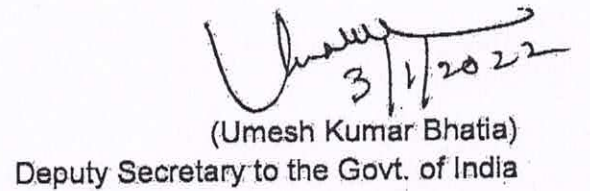 Umesh
3/1/2022
(Umesh Kumar Bhatia)
Deputy Secretary to the Govt. of India